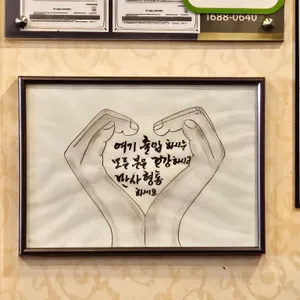 1688-0640
여기 출입 하시는
모든 분들 건강하시고
만사형통
하세요